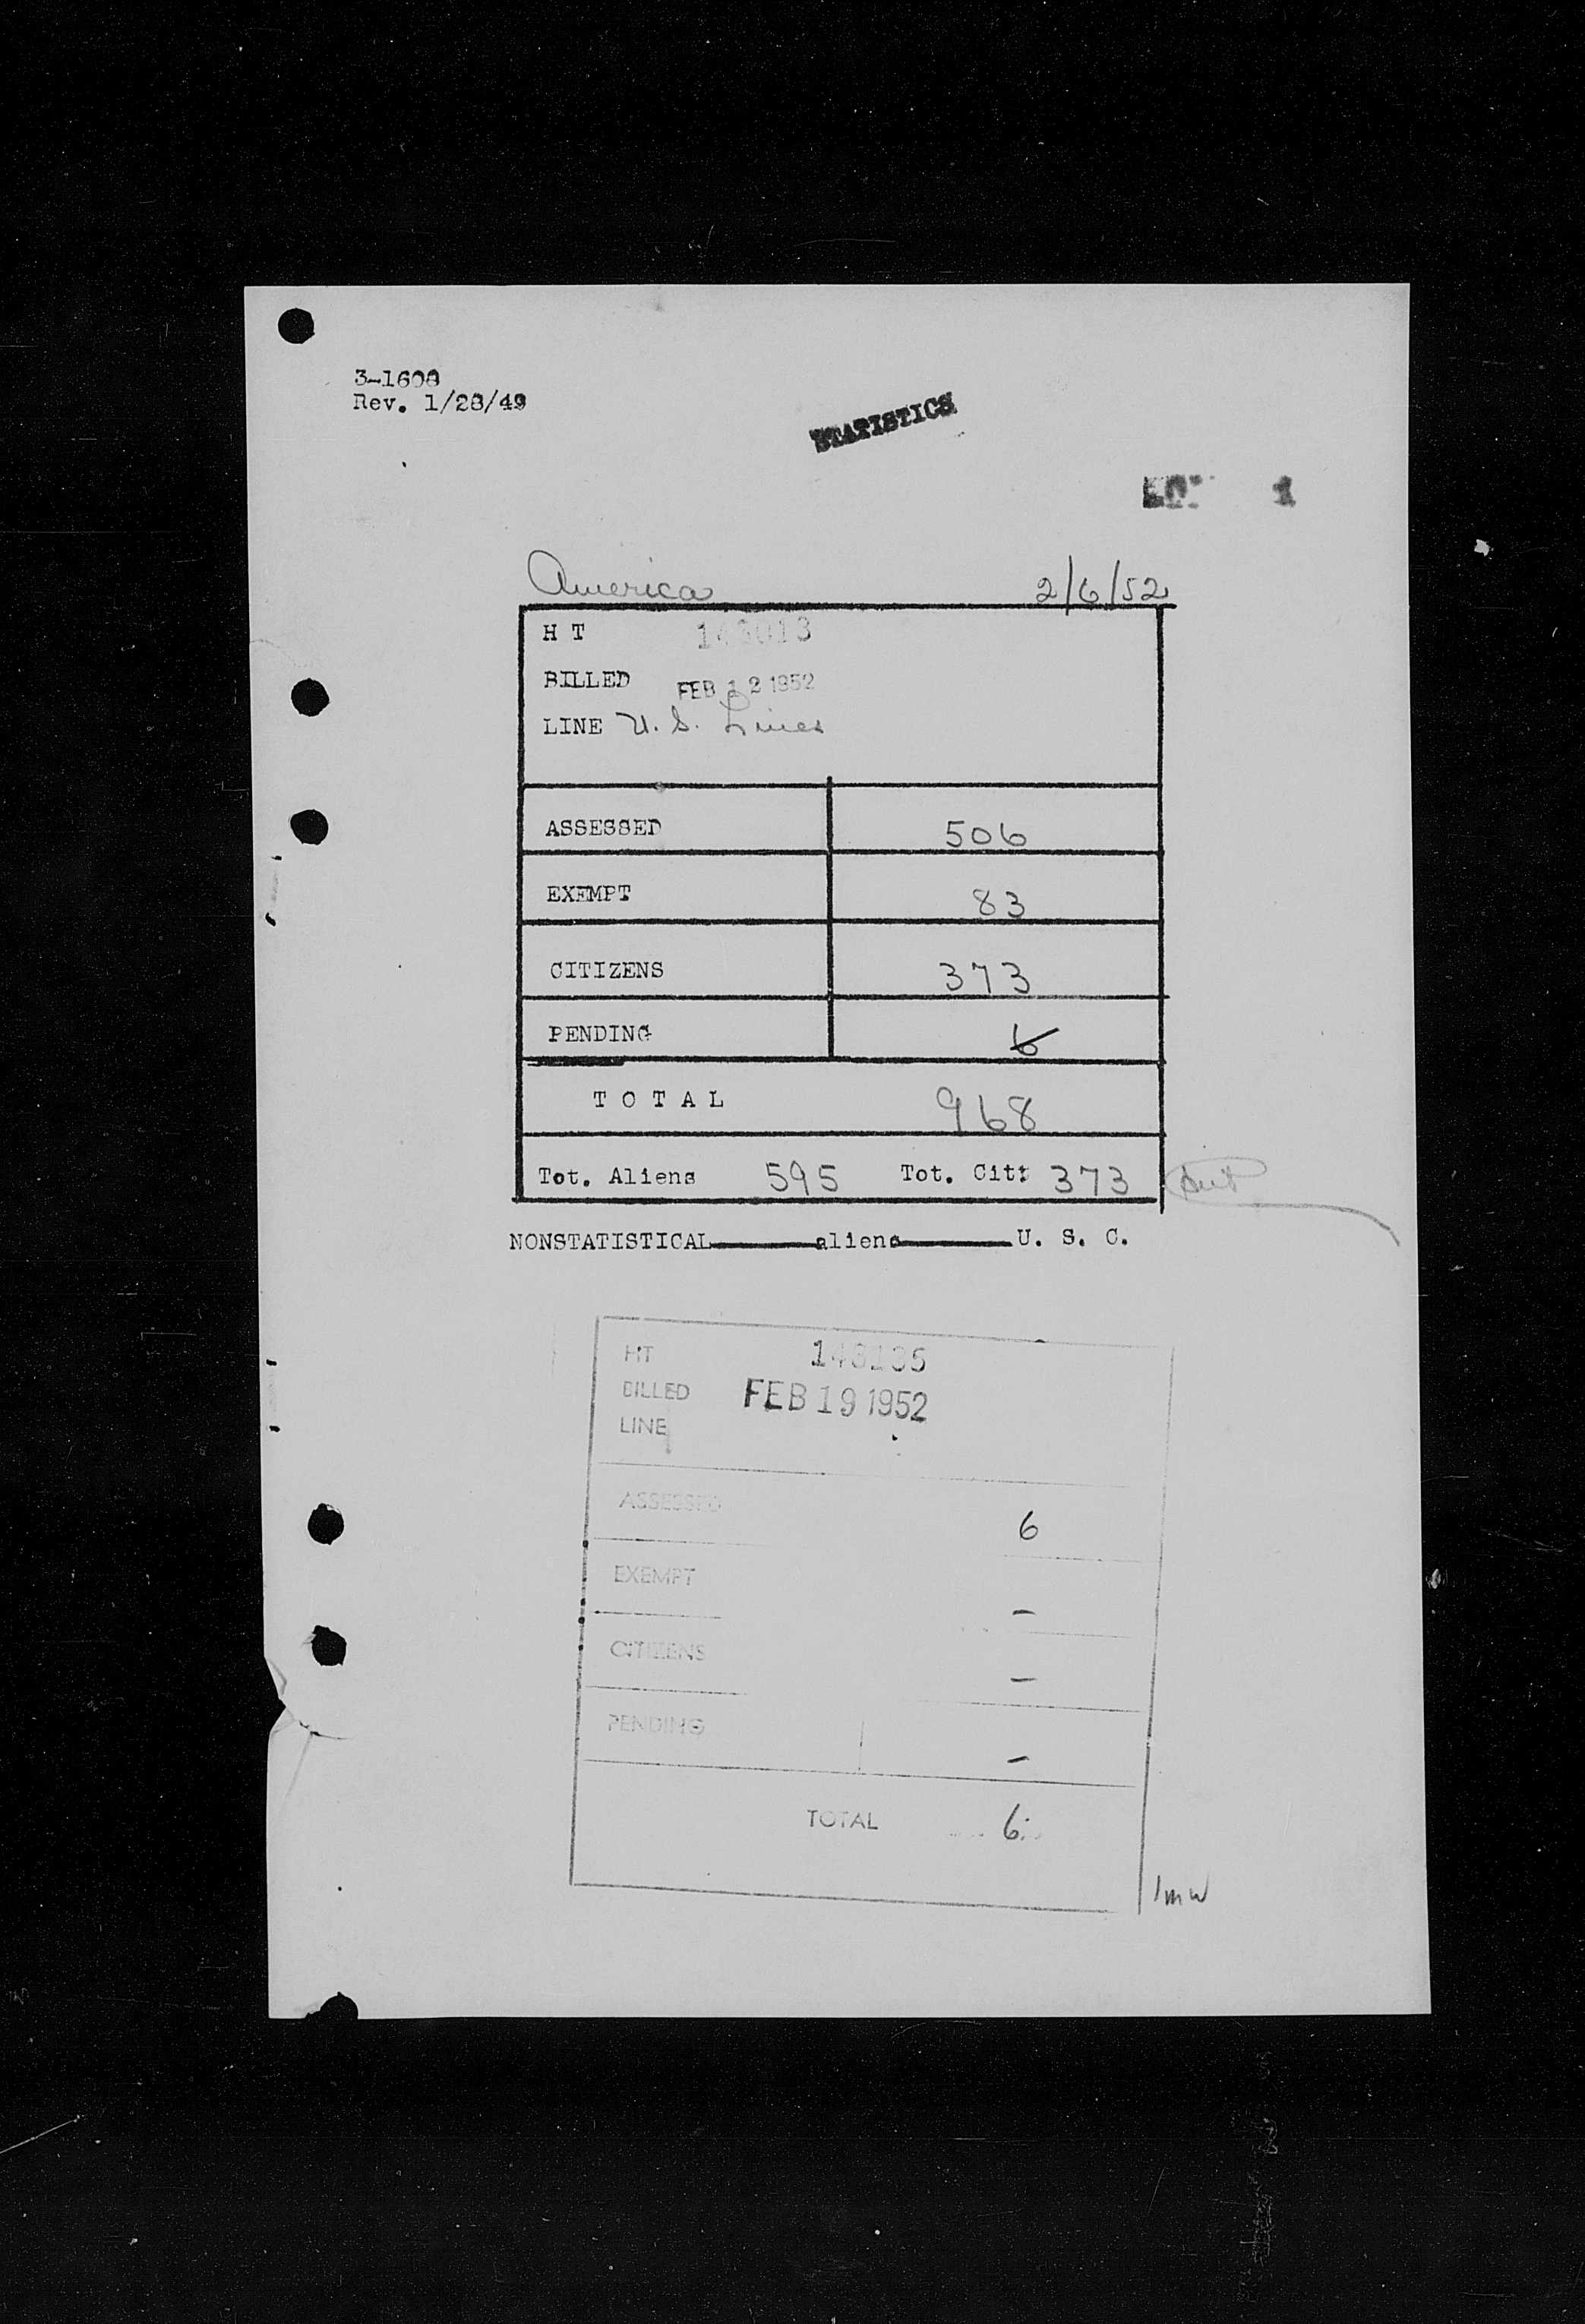 3-1608
Rev. 1/28/49
STATISTICS
1
America 2/6/52
H T
BILLED FEB 12 1952
LINE U. S. Lines
ASSESSED 506
EXEMPT 83
CITIZENS 373
PENDING 6
TOTAL 968
Tot. Aliens 595 Tot. Cit: 373
NONSTATISTICAL aliens U. S. C.
HT
BILLED FEB 19 1952
LINE
ASSESSED 6
EXEMPT –
CITIZENS –
PENDING –
TOTAL 6